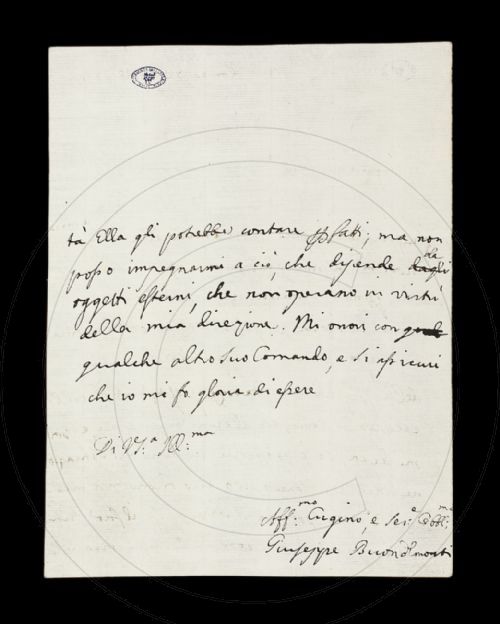 tà Ella gli potrebbe contare p fatti; ma non
posso impegnarmi a ciò, che dipende dagli
oggetti esterni, che non operano in virtù
della mia direzione. Mi onori con
qualche altro suo Comando, e si assicuri
che io mi fo gloria di essere
Di VS.a Ill.ma
Aff.mo Cugino, e Ser.e Obbl.mo
Giuseppe Buondelmonti